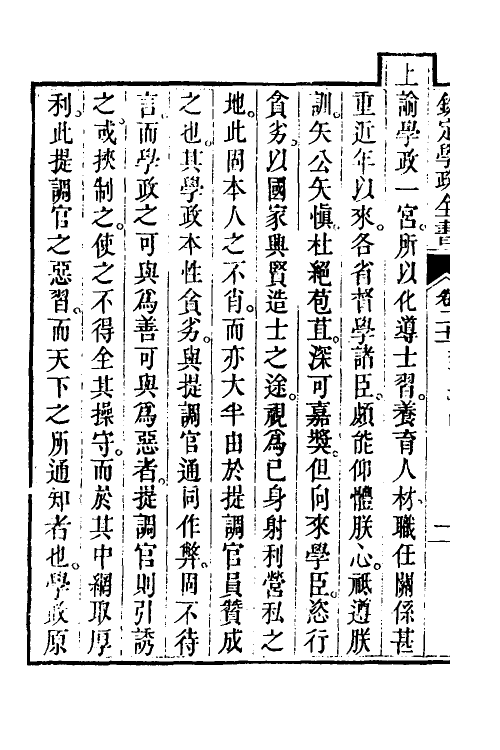 欽定學政全書 卷二十 二
上諭學政一官所以化導士習養育人材職任關係甚
重近年以來各省督學諸臣頗能仰體朕心祗遵朕
訓矢公矢慎杜絕苞苴深可嘉奬但向來學臣恣行
貪劣以國家興賢造士之途視爲已身射利營私之
地此固本人之不肖而亦大半由於提調官員贊成
之也其學政本性貪劣與提調官通同作弊固不待
言而學政之可與爲善可與爲惡者提調官則引誘
之或挾制之使之不得全其操守而於其中網取厚
利此提調官之惡習而天下之所通知者也學政原